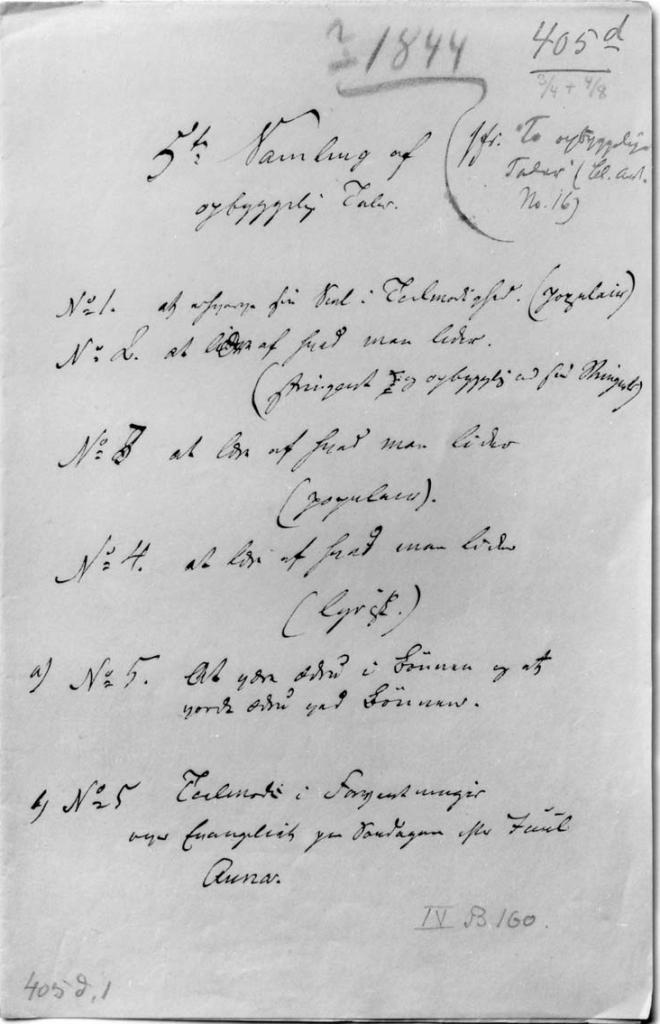 1844
405 d
3/4 + 4/8
5te Samling af
opbyggelig Taler.
(jfr. "To opbyggelige
Taler" (
No. 16)
No 1. at erhverve sin Sjel i Taalmodighed. (populair)
No 2. at lide af hvad man lider.
(stringent og opbyggelig ved sin
No 3 at lære af hvad man lider
(populair).
No 4. at lære af hvad man lider
(lyrisk.)
a) No 5. At være ædru i Bønnen og at
vorde ædru ved Bønnen.
b) No 5 Taalmod i Forventningen
over Evangeliet paa Søndagen efter Juul
Anna.
IV B 160.
405 d, 1